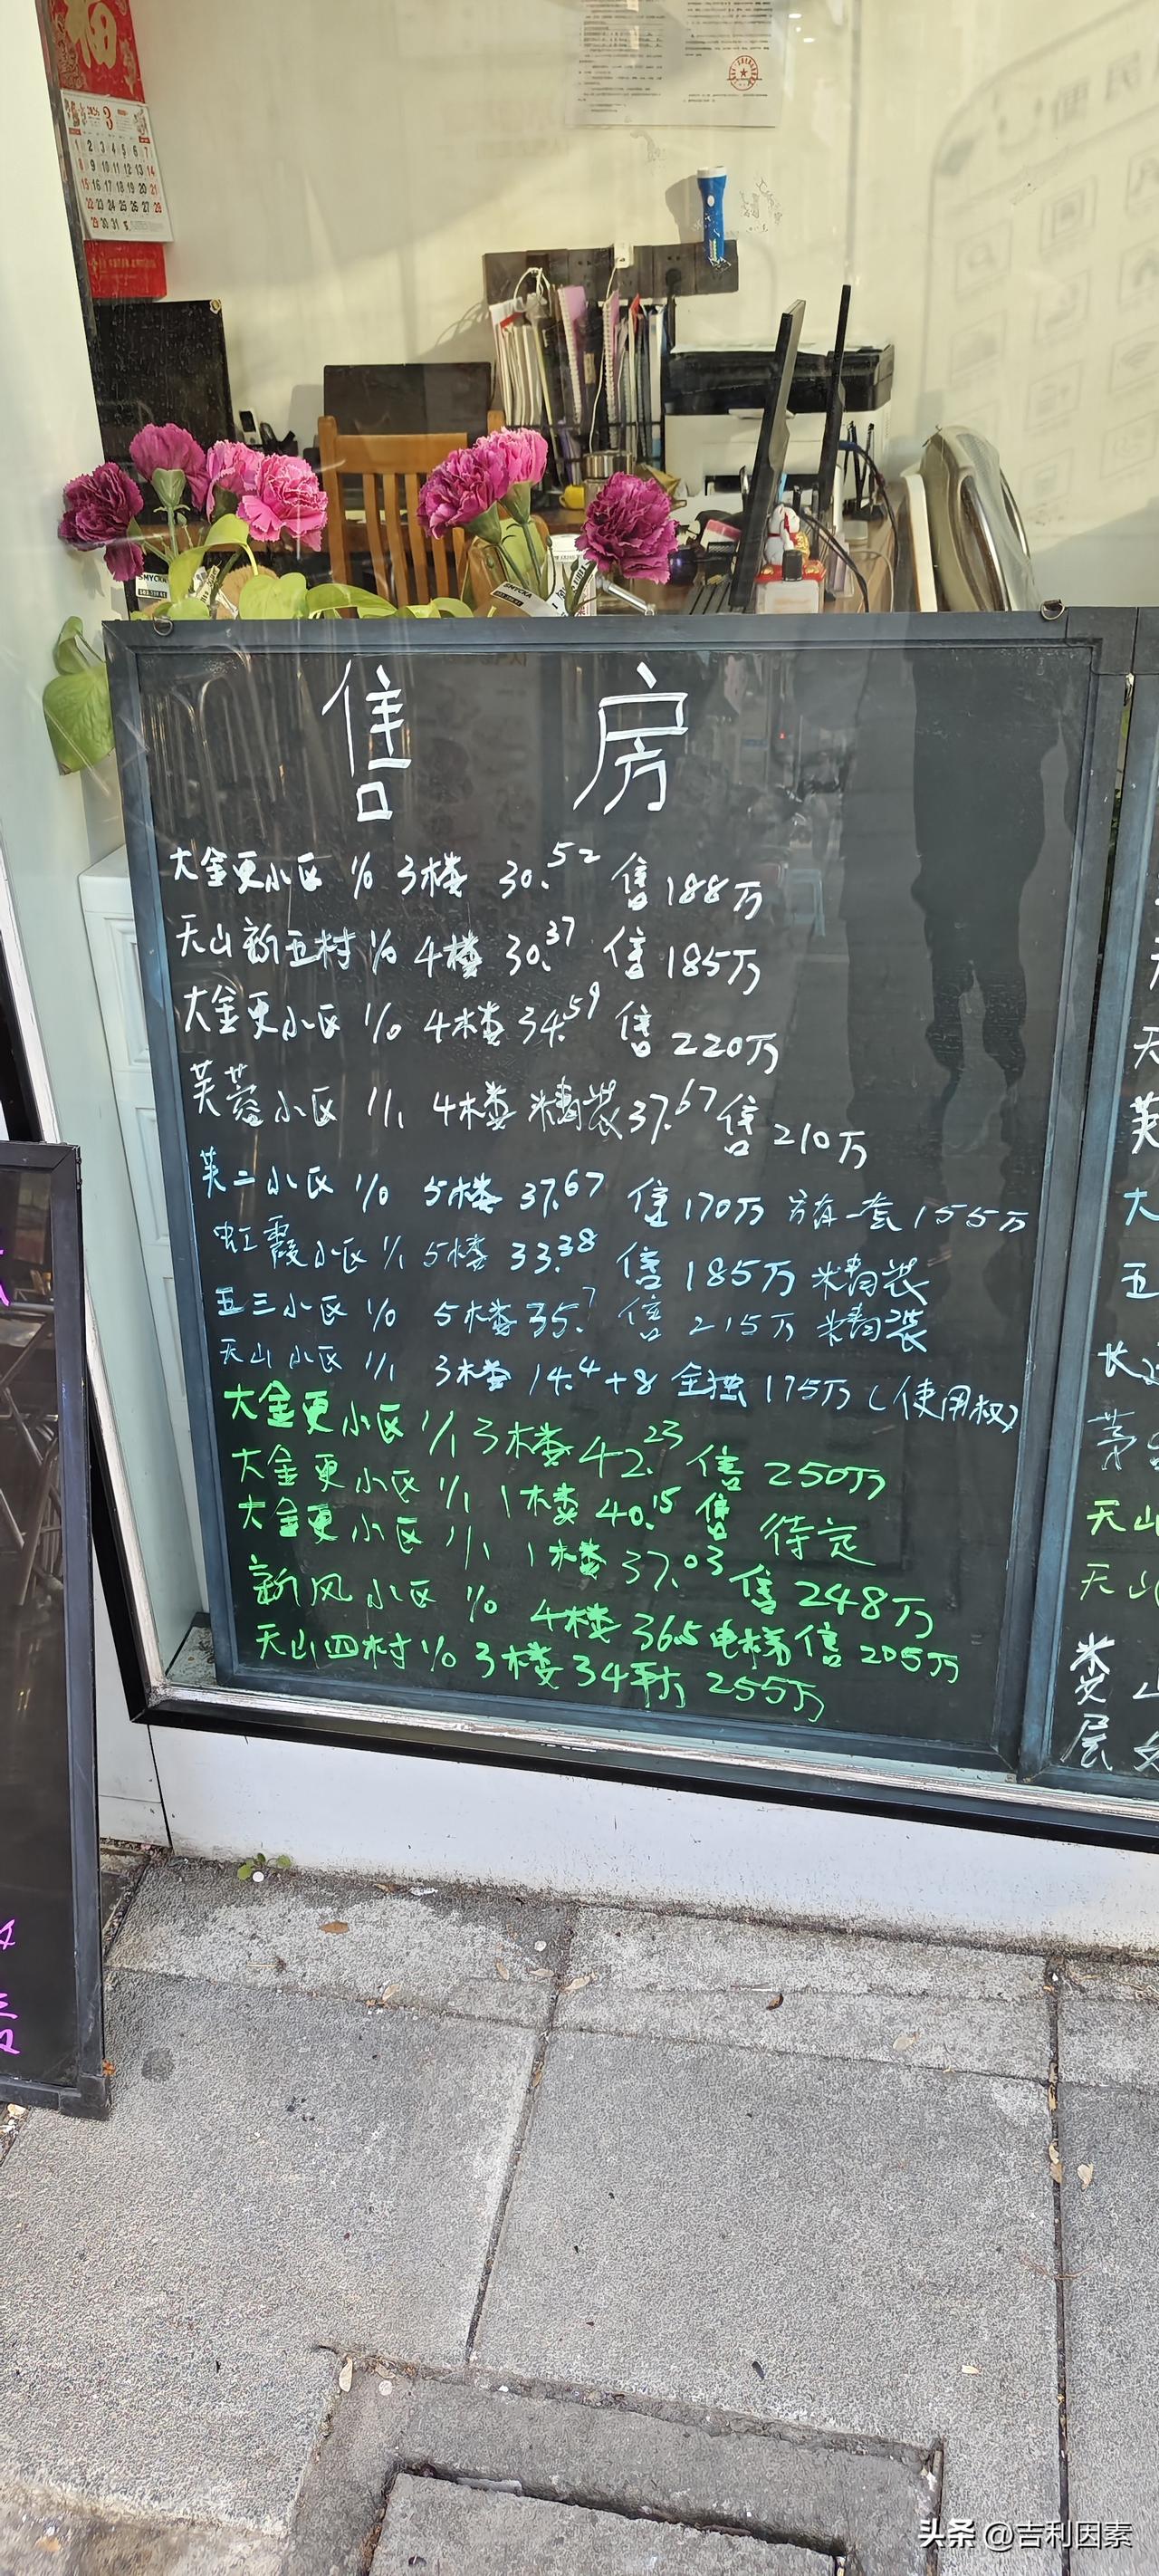 福
2026 3
1 2 3 4 5 6 7
8 9 10 11 12 13 14
15 16 17 18 19 20 21
22 23 24 25 26 27 28
29 30 31
SMYCKA
SMYCKA
售 房
大金更小区 1/0 3楼 30.52 售188万
天山新五村 1/0 4楼 30.37 售185万
大金更小区 1/0 4楼 34.59 售220万
芙蓉小区 1/1 4楼 精装 37.67 售210万
芙二小区 1/0 5楼 37.67 售170万 另有一套155万
虹霞小区 1/1 5楼 33.38 售185万 精装
五三小区 1/0 5楼 35.7 售215万 精装
天山小区 1/1 3楼 14.4+8 全独175万(使用权)
大金更小区 1/1 3楼 42.23 售250万
大金更小区 1/1 1楼 40.15 售 待定
大金更小区 1/1 1楼 37.03 售248万
新风小区 1/0 4楼 36.5 电梯 售205万
天山四村 1/0 3楼 34平 255万
天
芙
大
五
长
天山
天山
类
层
头条 @吉利因素